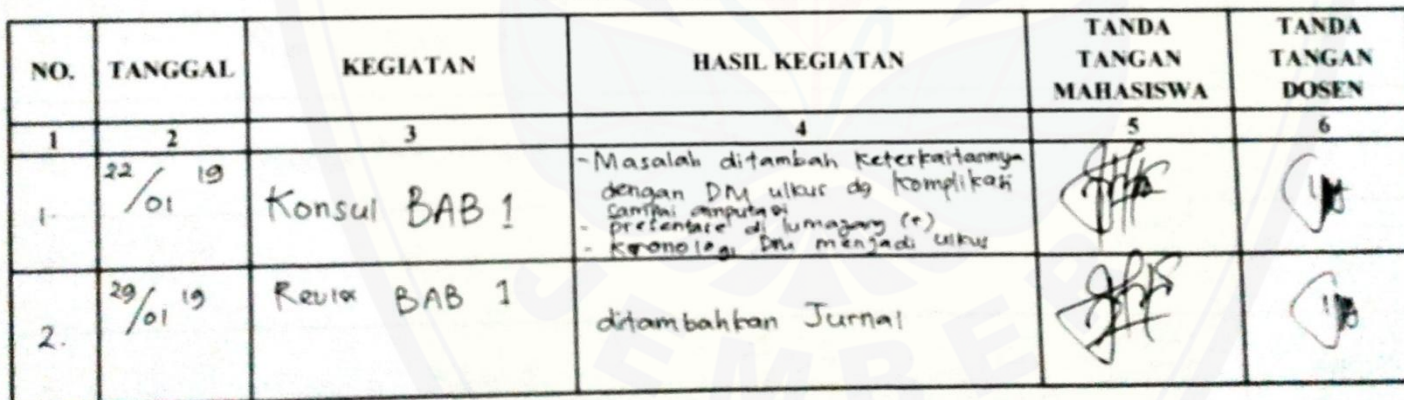 NO. TANGGAL KEGIATAN HASIL KEGIATAN TANDA TANGAN MAHASISWA TANDA TANGAN DOSEN
1 2 3 4 5 6
1. 22/01 19 Konsul BAB 1 - Masalah ditambah keterkaitannya
dengan DM ulkus dg komplikasi
sampai amputasi
- presentase di lumajang (+)
- Kronologi DM menjadi ulkus
2. 29/01 19 BAB 1 ditambahkan Jurnal
JEMBER